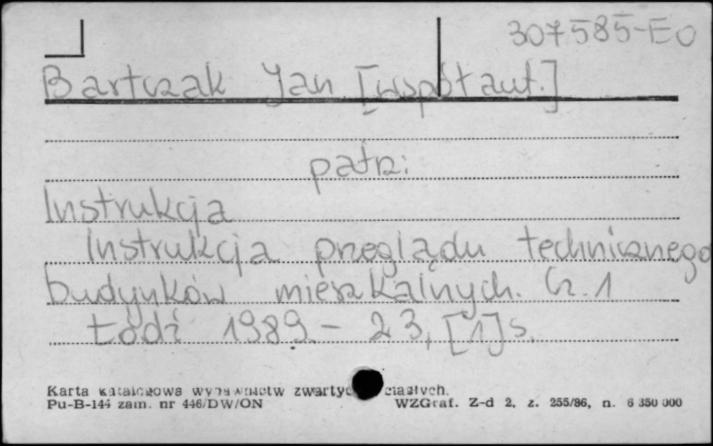 307585-EO
Bartczak Jan [współaut.]
patrz:
Instrukcja
Instrukcja przeglądu technicznego
budynków mieszkalnych. Cz. 1
Łódź 1989.- 23, [1] s.
Karta katalogowa wydawnictw zwartych ciągłych.
Pu-B-144 zam. nr 446/DW/ON WZGraf. Z-d 2, z. 255/86, n. 6 350 000